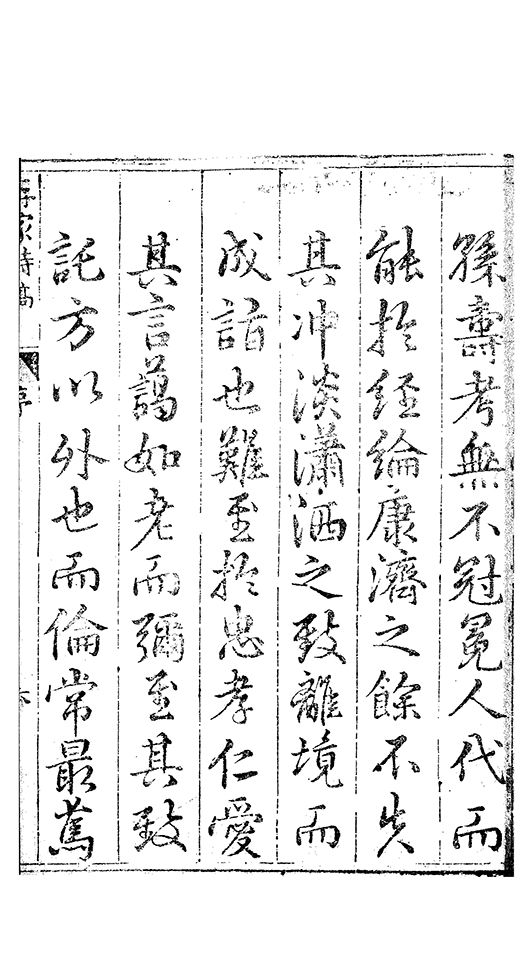 孫壽考無不冠冕人代而
能於經綸康濟之餘不失
其冲淡瀟洒之致離境而
成詣也難至於忠孝仁愛
其言藹如老而彌至其致
託方以外也而倫常最篤
家詩稿
序